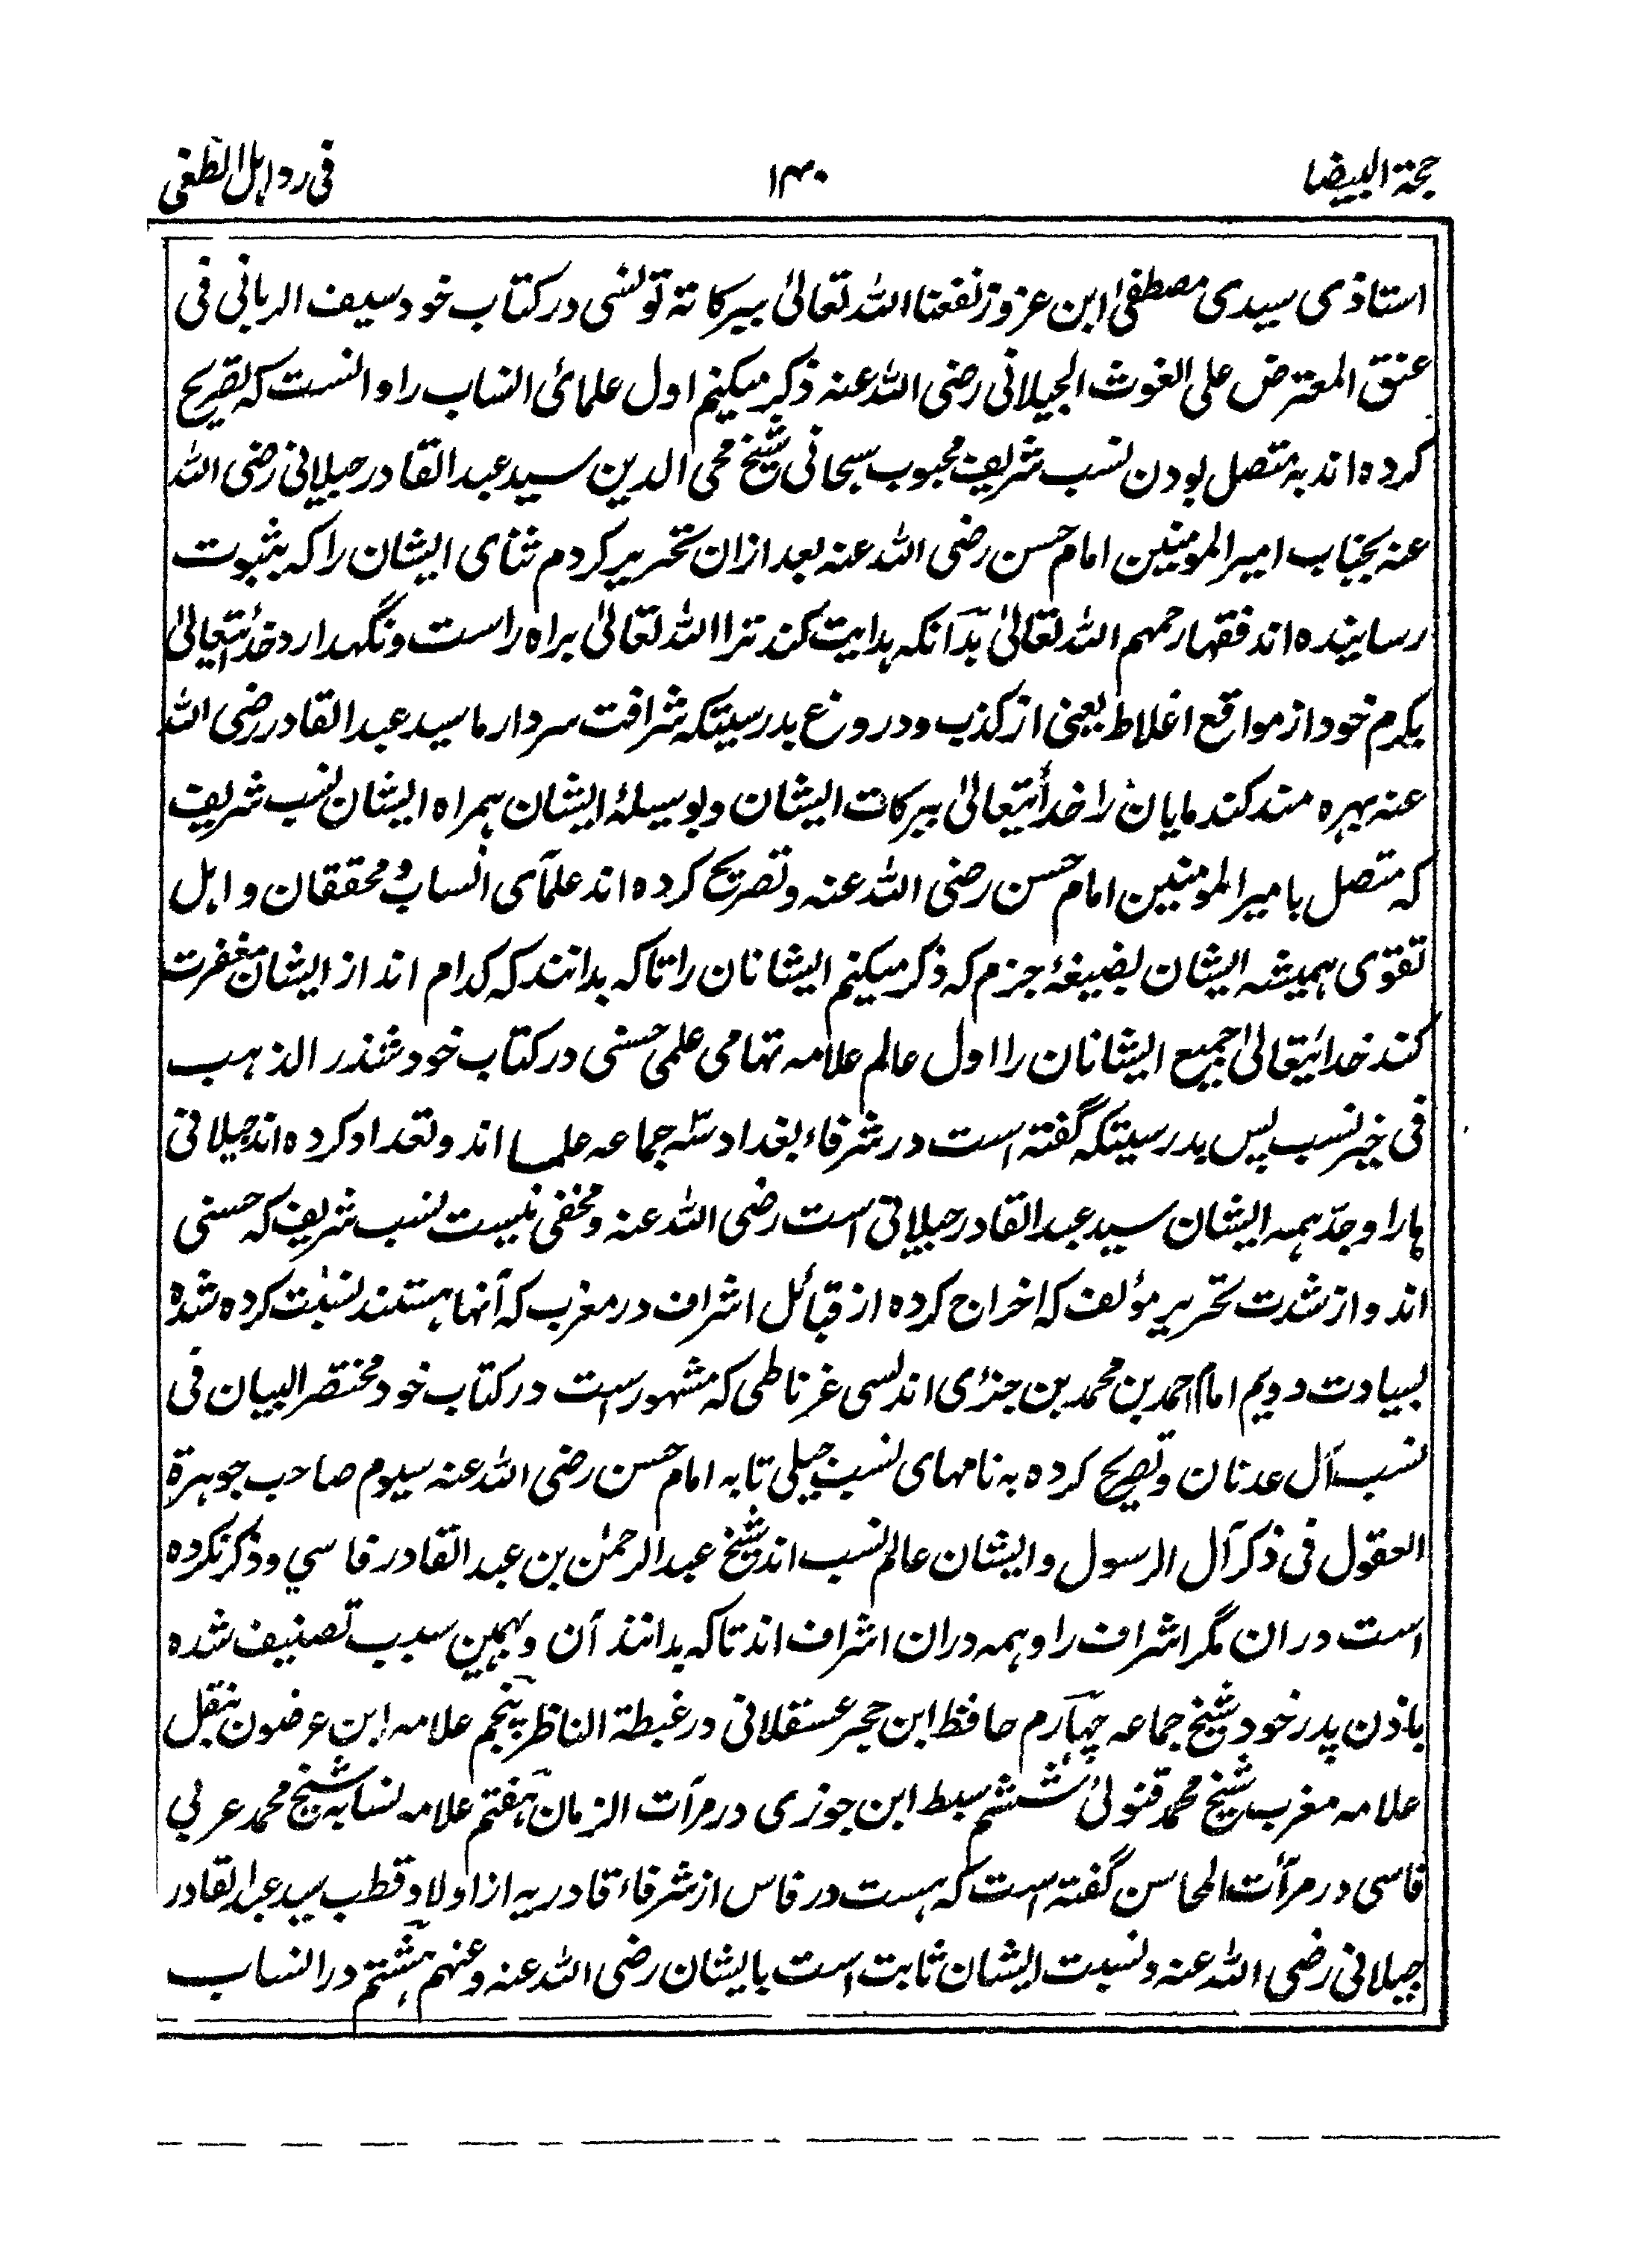 حجة البیضا ۱۴۰ فی رد اہل الطغی
استاذی سیدی مصطفیٰ ابن عزوز نفعنا اللہ تعالیٰ ببرکاتہ تونسی در کتاب خود سیف الربانی فی
عنق المعترض علی الغوث الجیلانی رضی اللہ عنہ ذکر میکنم اول علمائی انساب را و انست کہ تصریح
کردہ اند بہ متصل بودن نسب شریف محبوب سبحانی شیخ محی الدین سید عبد القادر جیلانی رضی اللہ
عنہ بجناب امیر المومنین امام حسن رضی اللہ عنہ بعد ازان تحریر کردم ثنای ایشان را کہ بثبوت
رسانیدہ اند فقہا رحمہم اللہ تعالیٰ بدآنکہ ہدایت کند ترا اللہ تعالیٰ براہ راست و نگہدارد خدائتعالیٰ
بکرم خود از مواقع اغلاط یعنی از کذب و دروغ بدرسیتکہ شرافت سردار ما سید عبد القادر رضی اللہ
عنہ بہرہ مند کند مایان را خدائتعالیٰ ببرکات ایشان و بوسیلۂ ایشان ہمراہ ایشان نسب شریف
کہ متصل با میر المومنین امام حسن رضی اللہ عنہ و تصریح کردہ اند علمآی انساب و محققان و اہل
تقوی ہمیشہ ایشان بصیغۂ جزم کہ ذکر میکنم ایشانان را تاکہ بدانند کہ کدام اند از ایشان مغفرت
کند خدائتعالیٰ جمیع ایشانان را اول عالم علامہ تہامی علمی حسنی در کتاب خود شذر الذہب
فی خیر نسب پس بدرسیتکہ گفتہ است در شرفاء بغداد سہ جماعہ علما اند و تعداد کردہ اند جیلانی
ہا را و جدّ ہمہ ایشان سید عبد القادر جیلانی است رضی اللہ عنہ و مخفی نیست نسب شریف کہ حسنی
اند و از شدت تحریر مؤلف کہ اخراج کردہ از قبائل اشراف در مغرب کہ آنہا ہستند نسبت کردہ شدہ
بسیادت دویم امام احمد بن محمد بن جزی اندلسی غرناطی کہ مشہور است در کتاب خود مختصر البیان فی
نسب آل عدنان و تصریح کردہ بہ نامہای نسب جیلی تا بہ امام حسن رضی اللہ عنہ سیوم صاحب جوہرة
العقول فی ذکر آل الرسول و ایشان عالم نسب اند شیخ عبد الرحمٰن بن عبد القادر فاسي و ذکر نکردہ
است در ان مگر اشراف را و ہمہ دران اشراف اند تاکہ بدانند آن و بہمین سبب تصنیف شدہ
باذن پدر خود شیخ جماعہ چہآرم حافظ ابن حجر عسقلانی در غبطة الناظر پنجم علامہ ابن عرضون بنقل
علامہ مغرب شیخ محمد قنولی ششم سبط ابن جوزی در مرآت الزمان ہفتم علامہ نسابہ شیخ محمد عربی
فاسی در مرآت المحاسن گفتہ است کہ ہست در فاس از شرفاء قادریہ از اولاد قطب سید عبد القادر
جیلانی رضی اللہ عنہ و نسبت ایشان ثابت است بایشان رضی اللہ عنہ و عنہم ہشتم در انساب